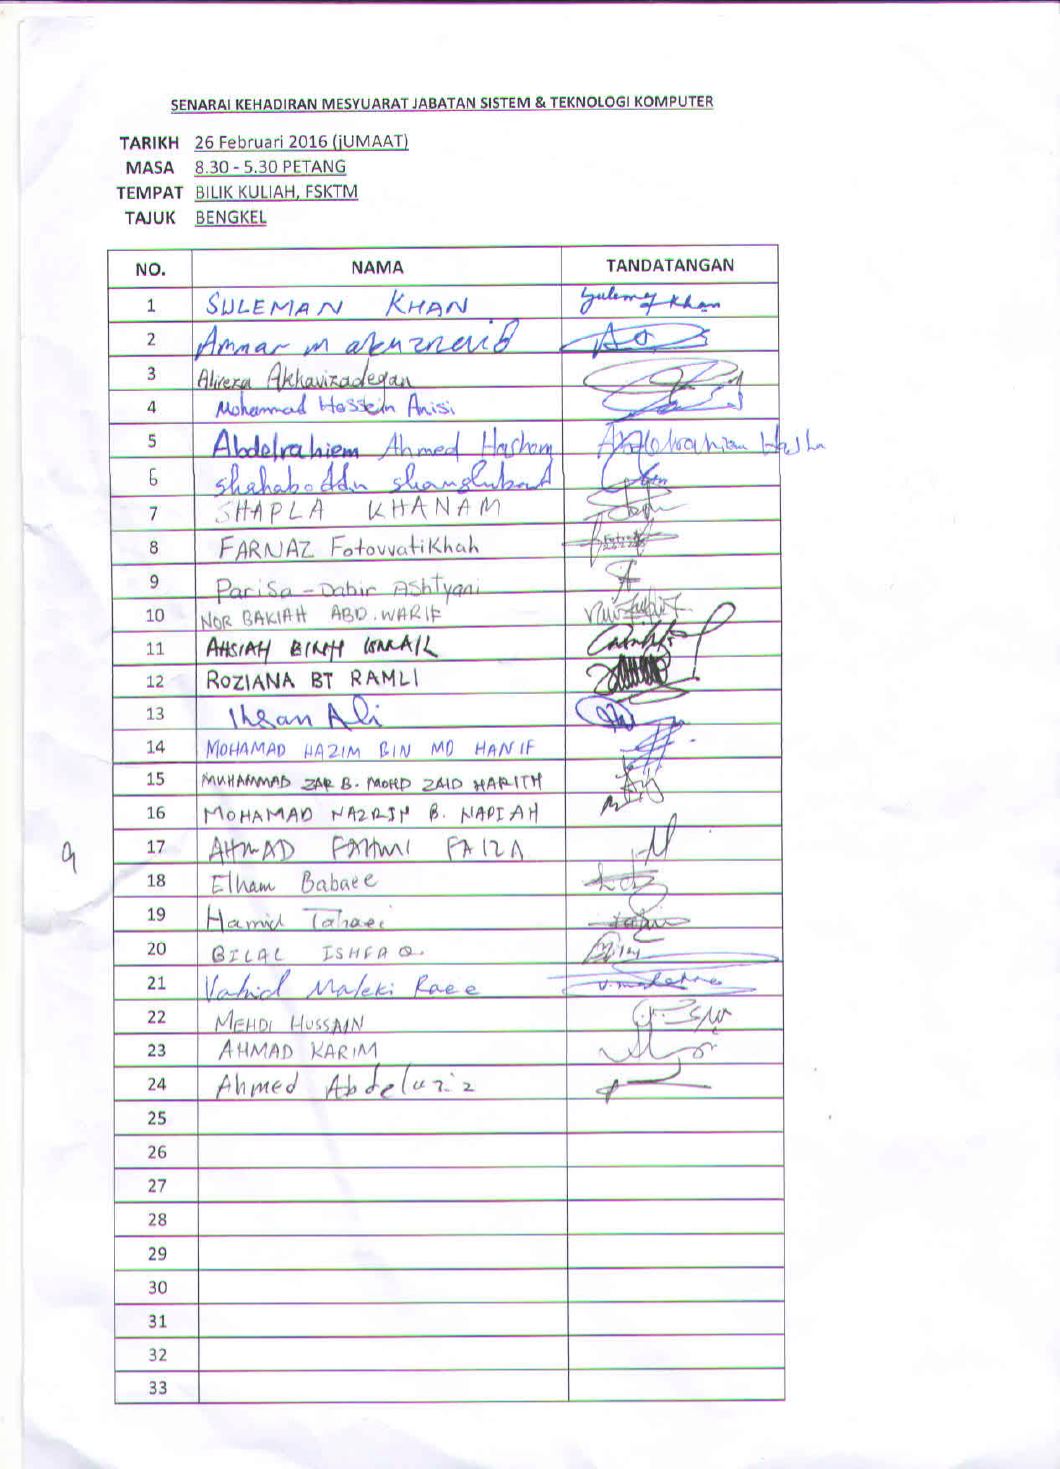 SENARAI KEHADIRAN MESYUARAT JABATAN SISTEM & TEKNOLOGI KOMPUTER
TARIKH 26 Februari 2016 (jUMAAT)
MASA 8.30 - 5.30 PETANG
TEMPAT BILIK KULIAH, FSKTM
TAJUK BENGKEL
NO. NAMA TANDATANGAN
1 SULEMAN KHAN Suleman Khan
2 Ammar m
3 Alireza Akhavizadegan
4 Mohammad Hossein Anisi
5 Abdelrahiem Ahmed Hashem
6 shahaboddin
7 SHAPLA KHANAM
8 FARNAZ FotovvatiKhah
9 Parisa-Dabir AShtyani
10 NOR BAKIAH ABD. WARIF
11 ISMAIL
12 ROZIANA BT RAMLI
13 Ihsan Ali
14 MOHAMAD HAZIM BIN MD HANIF
15 MUHAMMAD B. MOHD ZAID HARITH
16 MOHAMAD NAZRIN B. NAPIAH
17 AHMAD FAHMI FAIZA
18 Elham Babaee
19 Hamid
20 BILAL ISHFAQ.
21 Vahid Maleki Raee
22 MEHDI HUSSAIN
23 AHMAD KARIM
24 Ahmed Abdelaziz
25
26
27
28
29
30
31
32
33